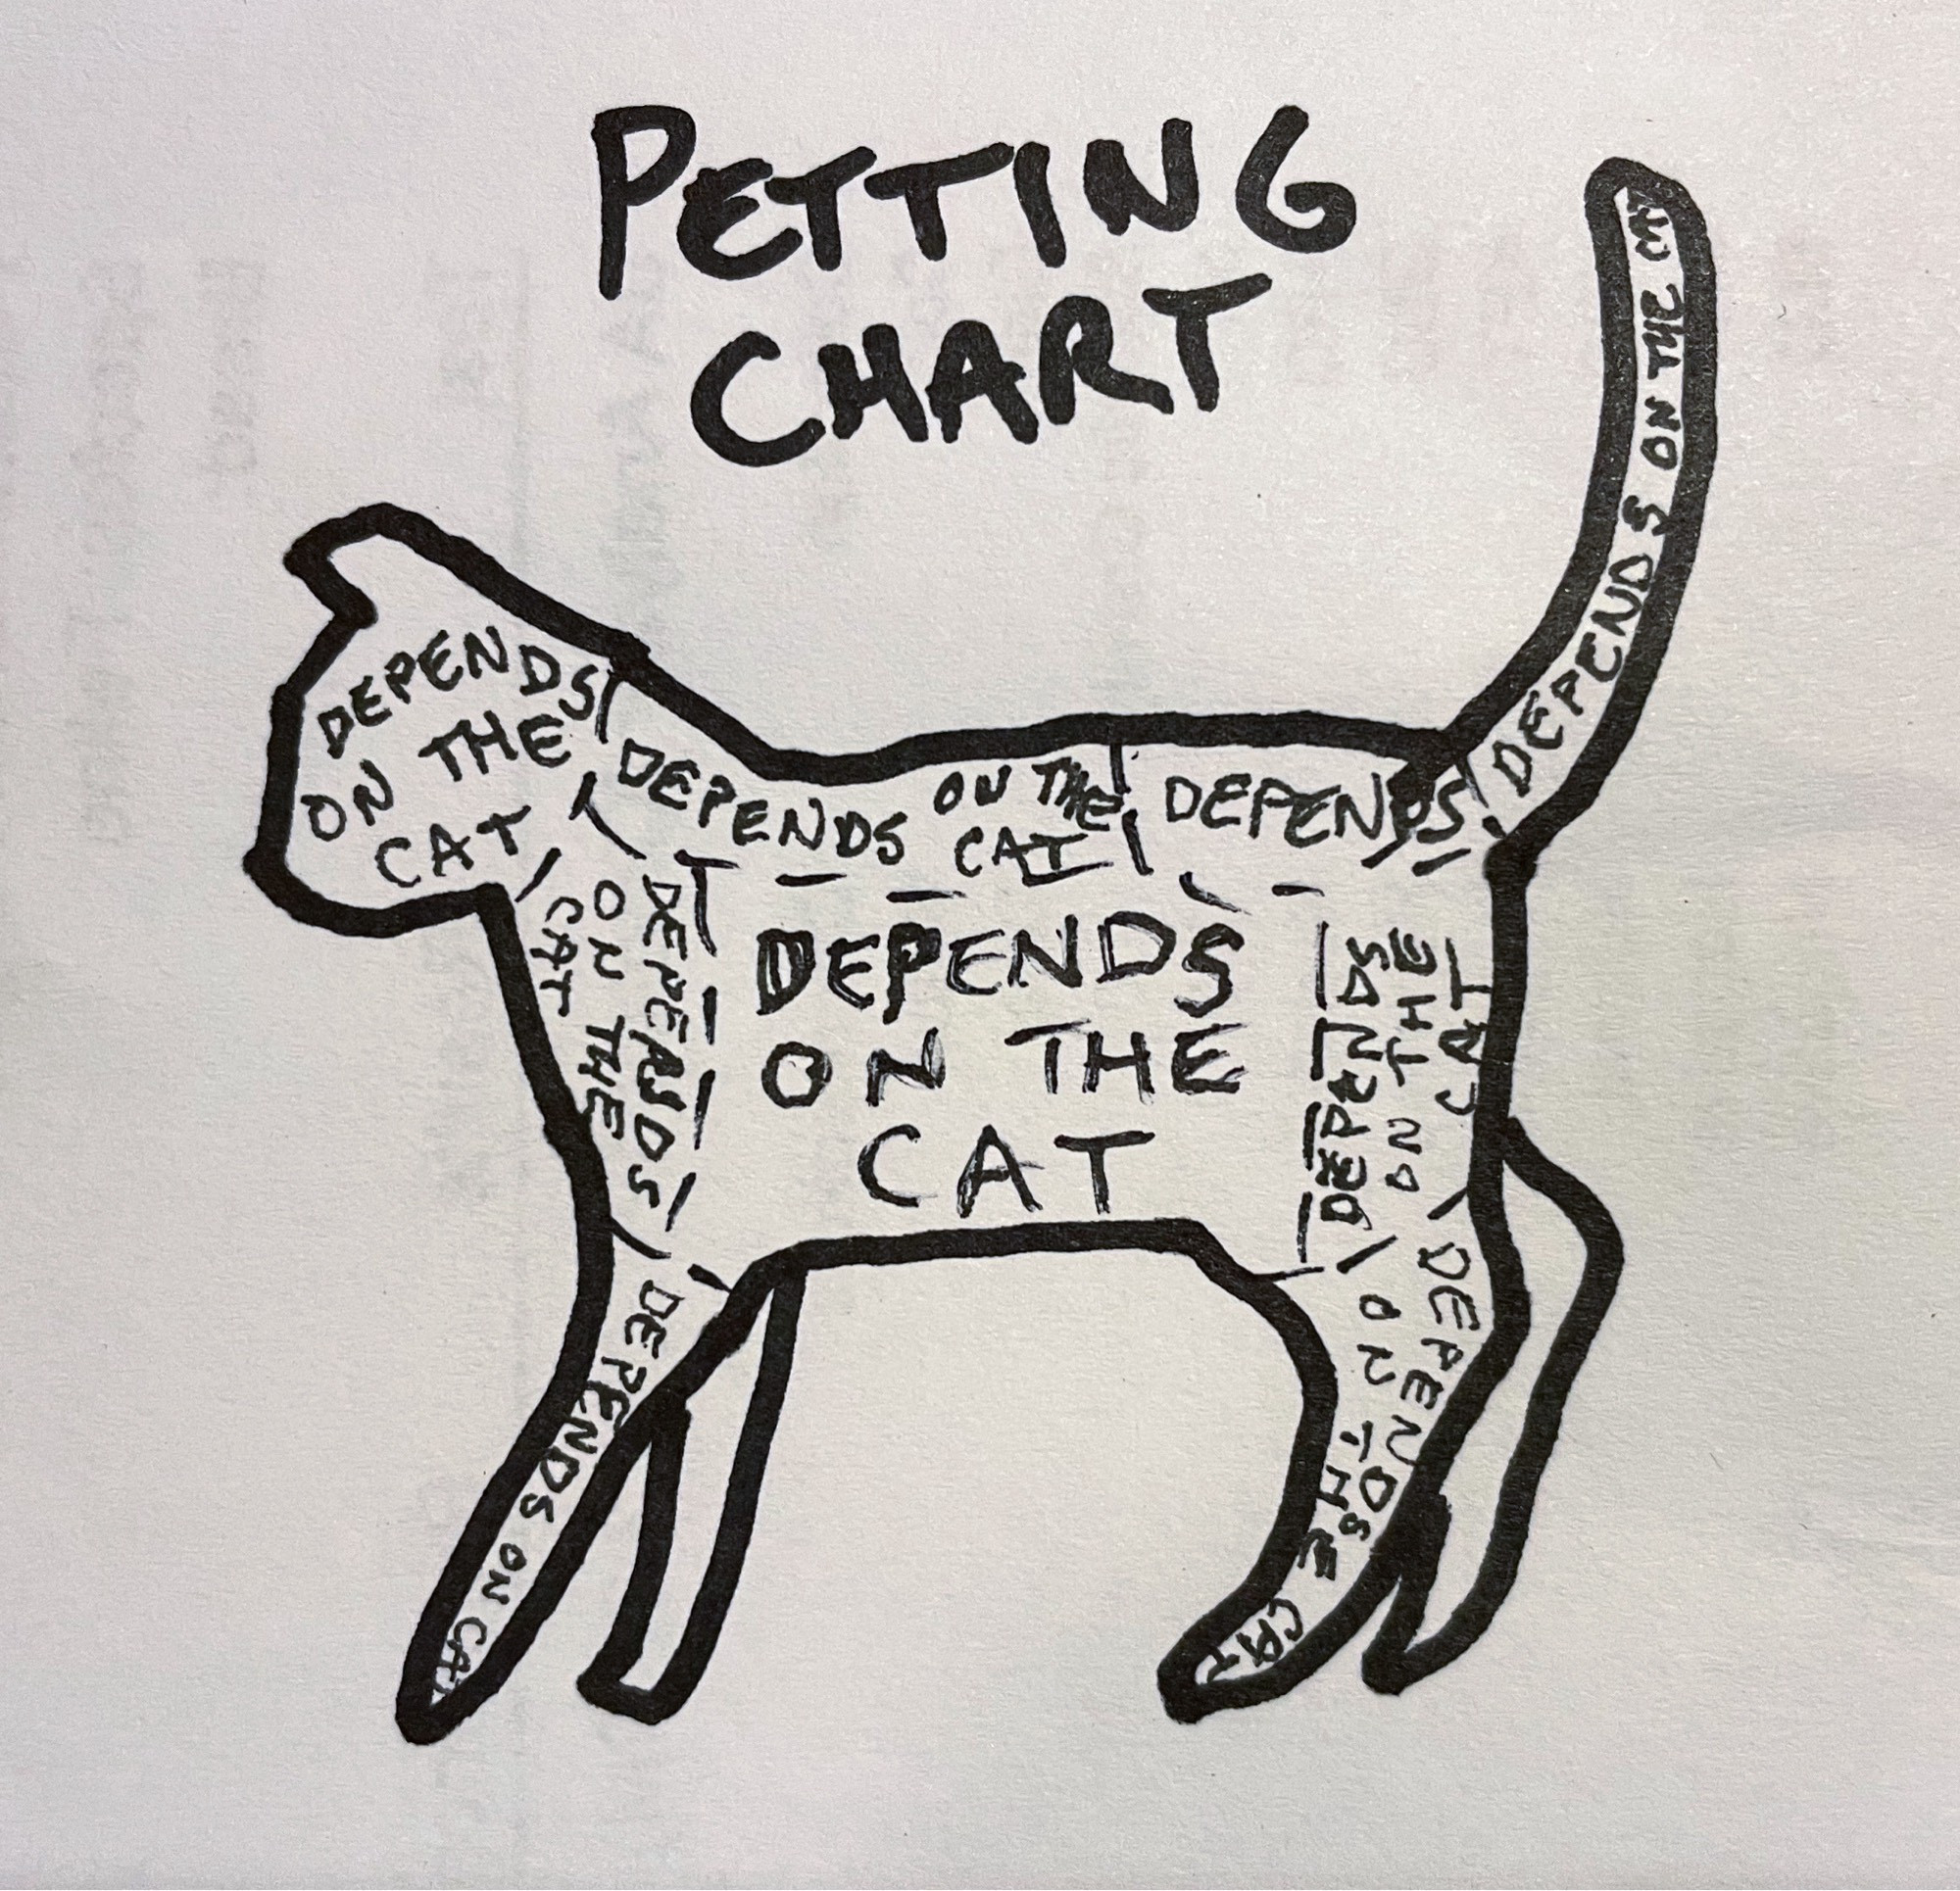 PETTING
CHART
DEPENDS
ON THE
CAT
DEPENDS ON THE
CAT
DEPENDS
DEPENDS ON THE CAT
DEPENDS
ON THE
CAT
DEPENDS
ON THE
CAT
DEPENDS
ON THE
CAT
DEPENDS ON CAT
DEPENDS
ON THE
CAT